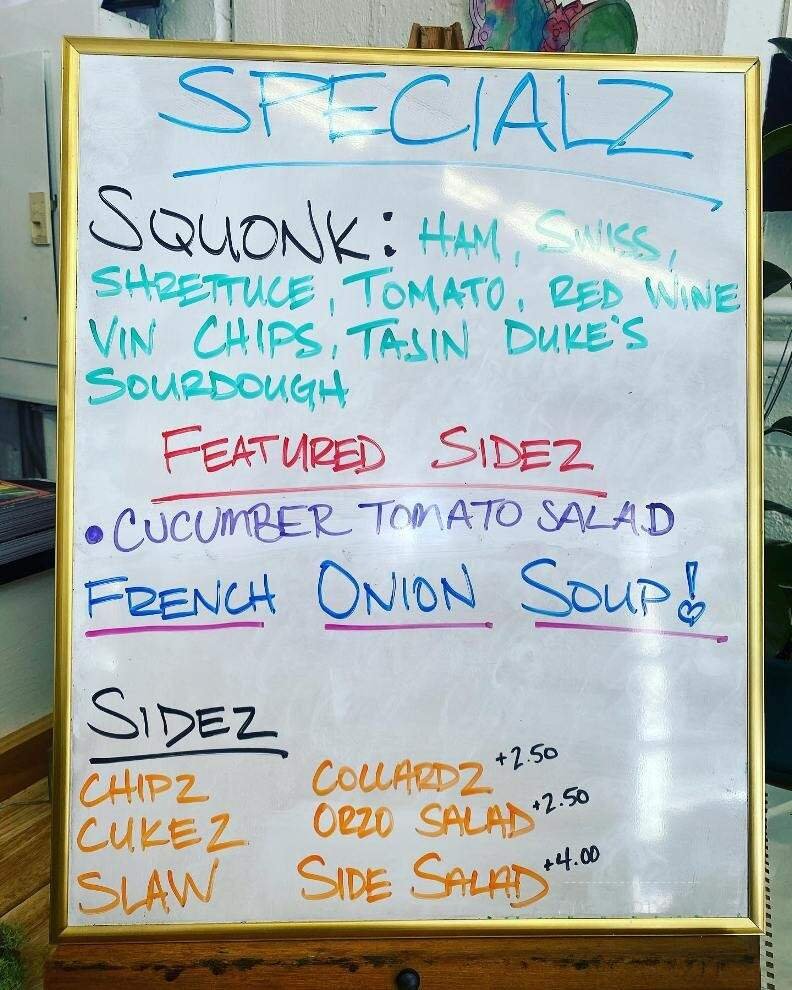 SPECIALZ
SQUONK: HAM, SWISS,
SHRETTUCE, TOMATO, RED WINE
VIN CHIPS, TAJIN DUKE'S
SOURDOUGH
FEATURED SIDEZ
• CUCUMBER TOMATO SALAD
FRENCH ONION SOUP!
SIDEZ
CHIPZ COLLARDZ +2.50
CUKEZ ORZO SALAD +2.50
SLAW SIDE SALAD +4.00